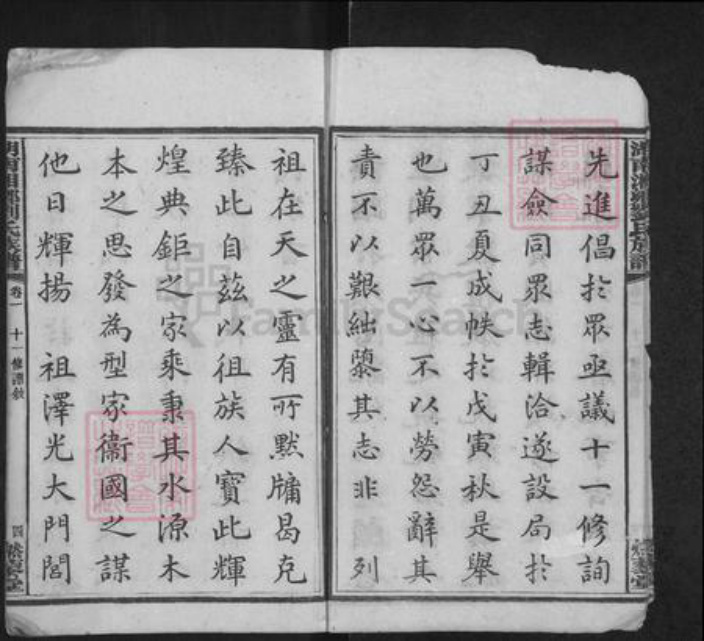 湖南湘鄉劉氏族譜
先進倡於眾亟議十一修詢
謀僉同眾志輯洽遂設局於
丁丑夏成帙於戊寅秋是舉
也萬眾一心不以勞怨辭其
責不以艱絀隳其志非 列
祖在天之靈有所默牖曷克
臻此自茲以徂族人寶此輝
煌典鉅之家乘秉其水源木
本之思發為型家衛國之謀
他日輝揚 祖澤光大門閭
湖南湘鄉劉氏族譜 卷一 十一修譜敘 四
FamilySearch